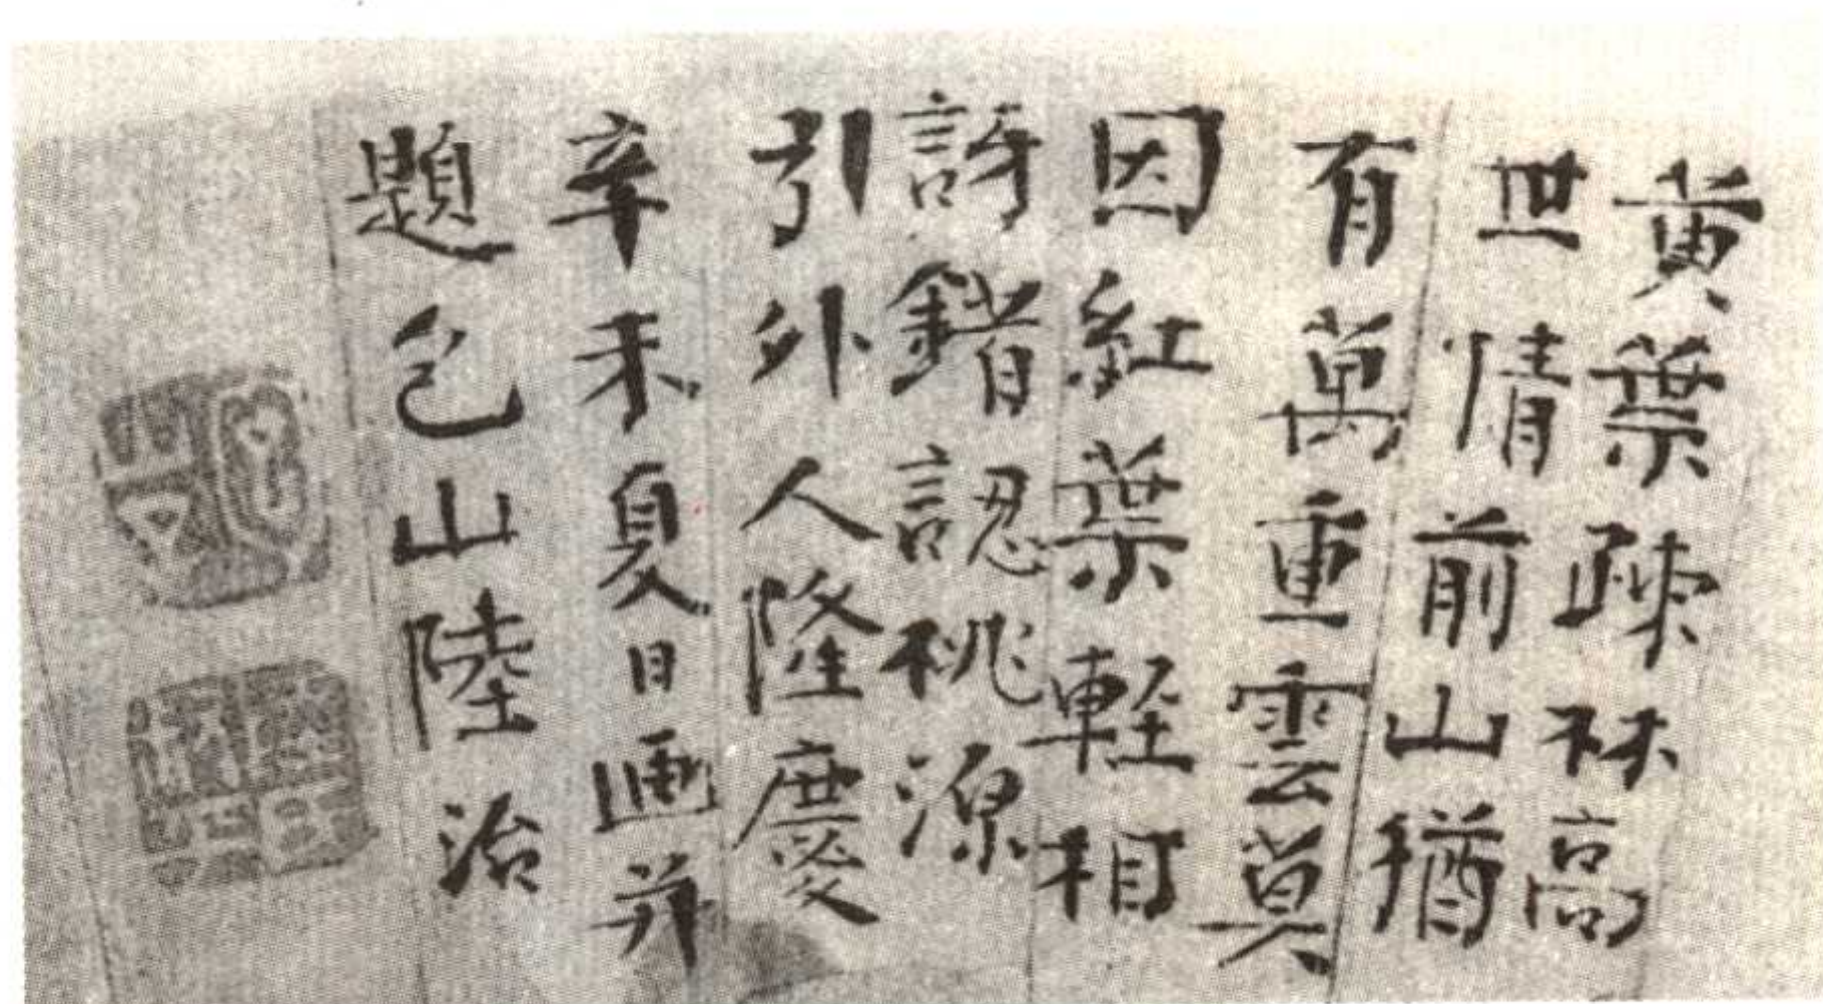 黃葉疎林高
世情前山猶
有萬重雲莫
因紅葉輕相
訝錯認桃源
引外人隆慶
辛未夏日画并
題包山陸治